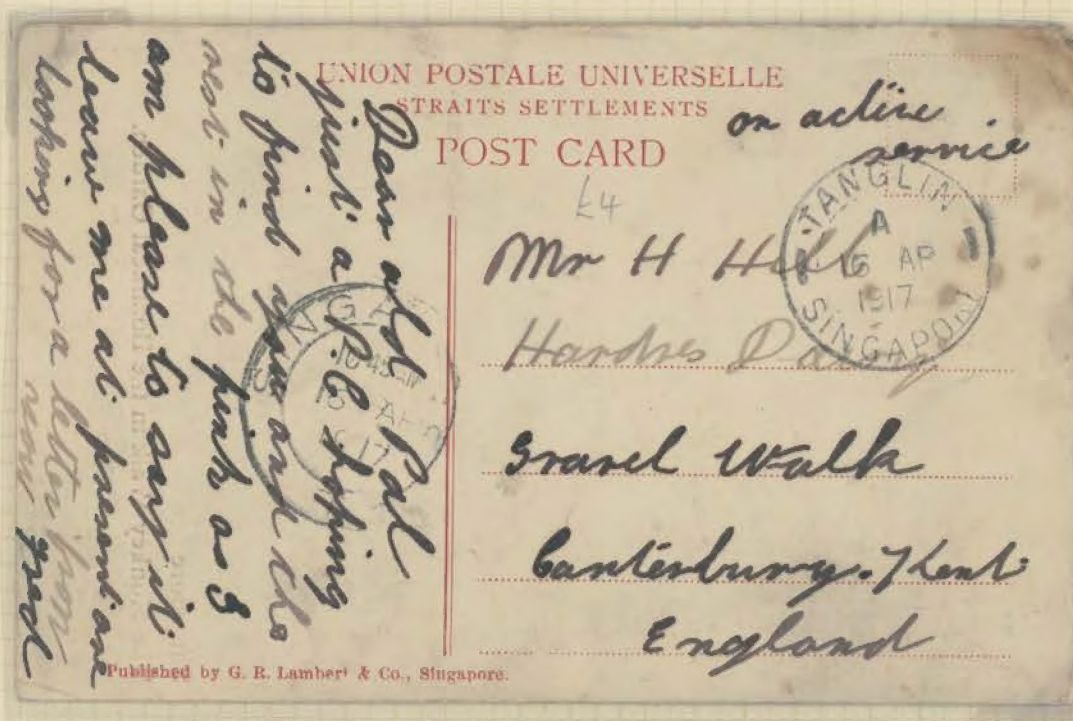 UNION POSTALE UNIVERSELLE
STRAITS SETTLEMENTS
POST CARD
on active
service
£4
TANGLIN
A
16 AP
1917
SINGAPORE
Mr H Hill
Hardres
Gravel Walk
Canterbury. Kent
England
Dear old Pal
just a P.C hoping
to find you and the
rest in the pink as I
am please to say it
leave me at present one
looking for a letter from
Fred
Published by G. R. Lambert & Co., Singapore.